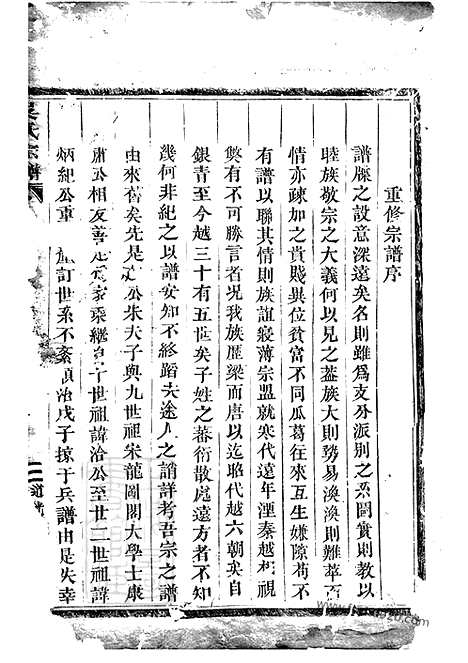 重修宗譜序
譜牒之設意深遠矣名則雖爲支分派别之系圖實則教以
睦族敬宗之大義何以見之蓋族大則勢易渙渙則難萃而
情亦疎加之貴賤異位貧富不同瓜葛往來互生嫌隙苟不
有譜以聯其情則族誼寖薄宗盟就寒代遠年湮秦越相視
弊有不可勝言者况我族歷梁而唐以迄昭代越六朝矣自
銀青至今越三十有五世矣子姓之蕃衍散處遠方者不知
幾何非紀之以譜安知不終蹈夫途人之誚詳考吾宗之譜
由來舊矣先是 公朱夫子與九世祖宋龍圖閣大學士康
肅公相友善 家乘繼 十世祖諱洽公至廿二世祖諱
炳紀公重 訂世系不紊順治戊子掠于兵譜由是失幸
吳氏宗譜